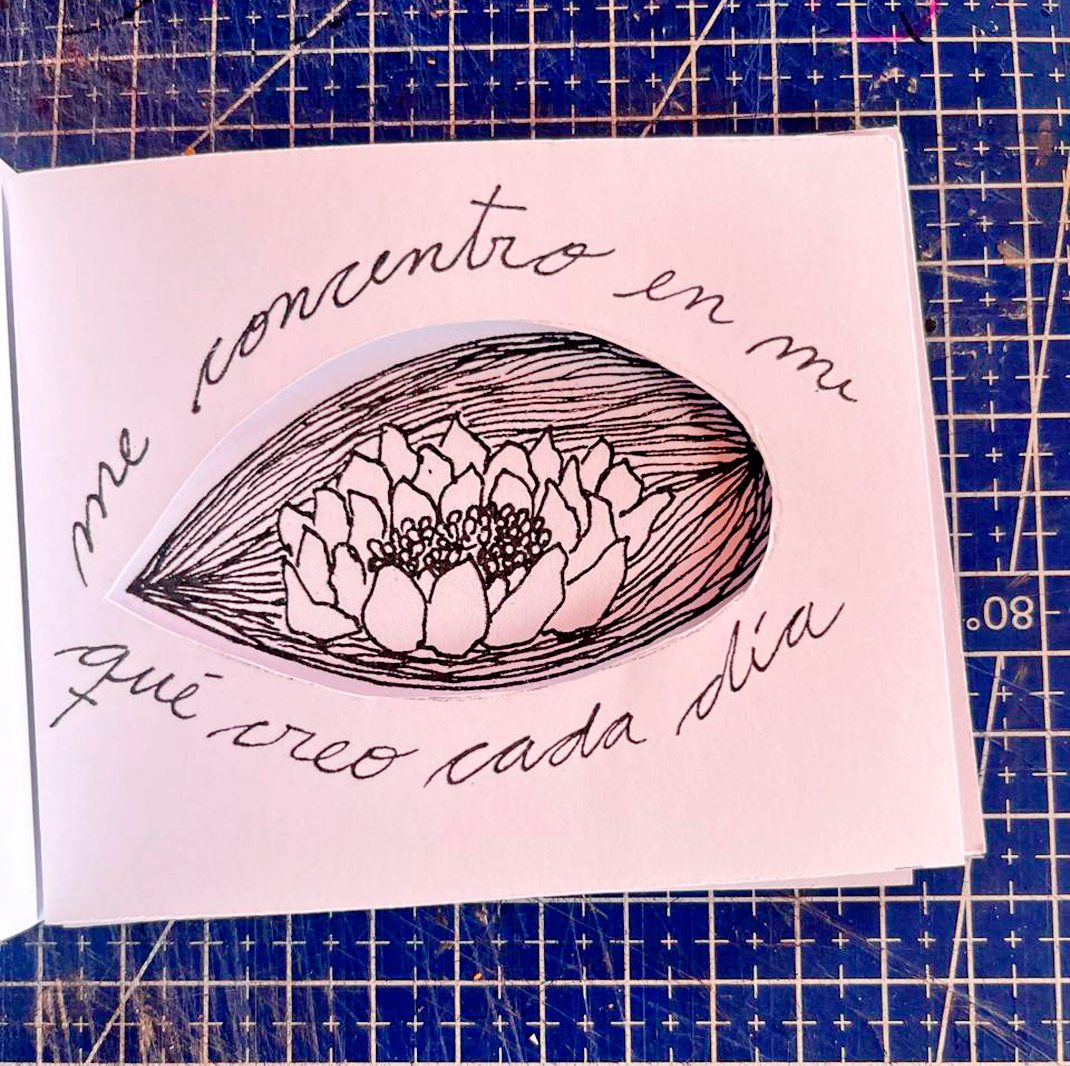 me concentro en mi
qué creo cada día
80°